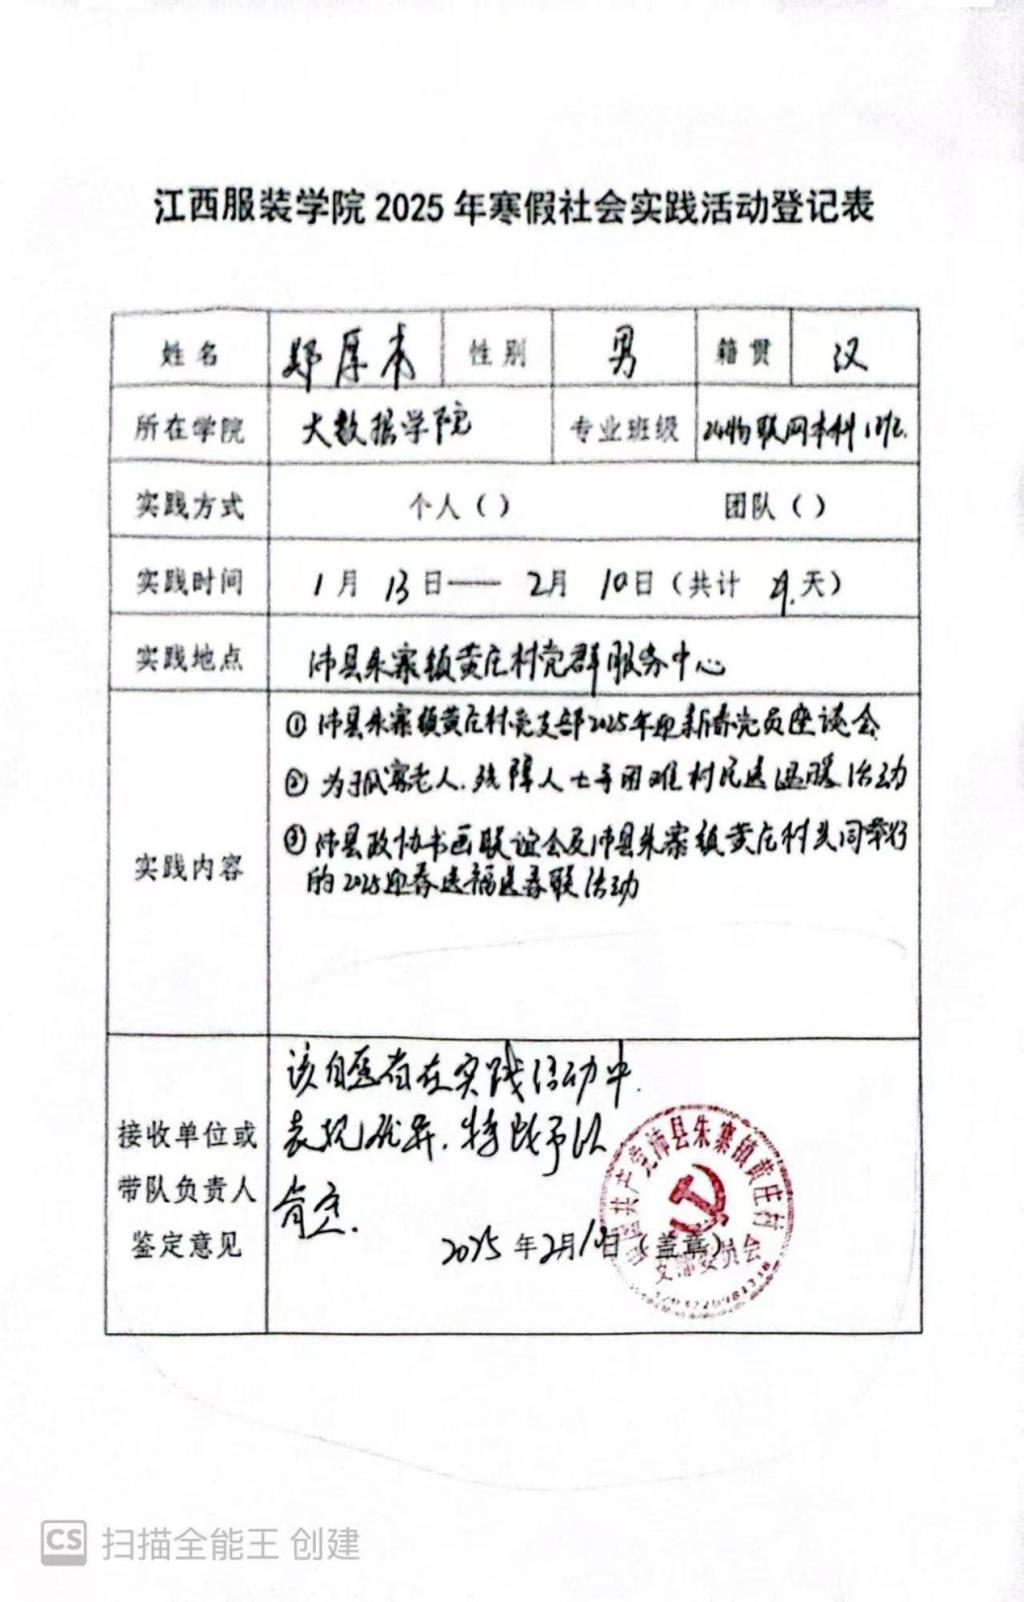 江西服装学院 2025 年寒假社会实践活动登记表
姓 名 郑厚本 性 别 男 籍 贯 汉
所在学院 大数据学院 专业班级 24物联网本科1班.
实践方式 个人（） 团队（）
实践时间 1 月 13 日—— 2月 10日（共计 天）
实践地点 沛县朱寨镇黄庄村党群服务中心
实践内容
① 沛县朱寨镇黄庄村党支部2025年迎新春党员座谈会
② 为孤寡老人.残障人士等困难村民送温暖活动
③ 沛县政协书画联谊会及沛县朱寨镇黄庄村共同举行
的2025迎春送福送春联活动
接收单位或
带队负责人
鉴定意见
该自愿者在实践活动中.
表现优异.特此予以
肯定.
2025 年2月10日（盖章）
中国共产党沛县朱寨镇黄庄村
支部委员会
CS 扫描全能王 创建